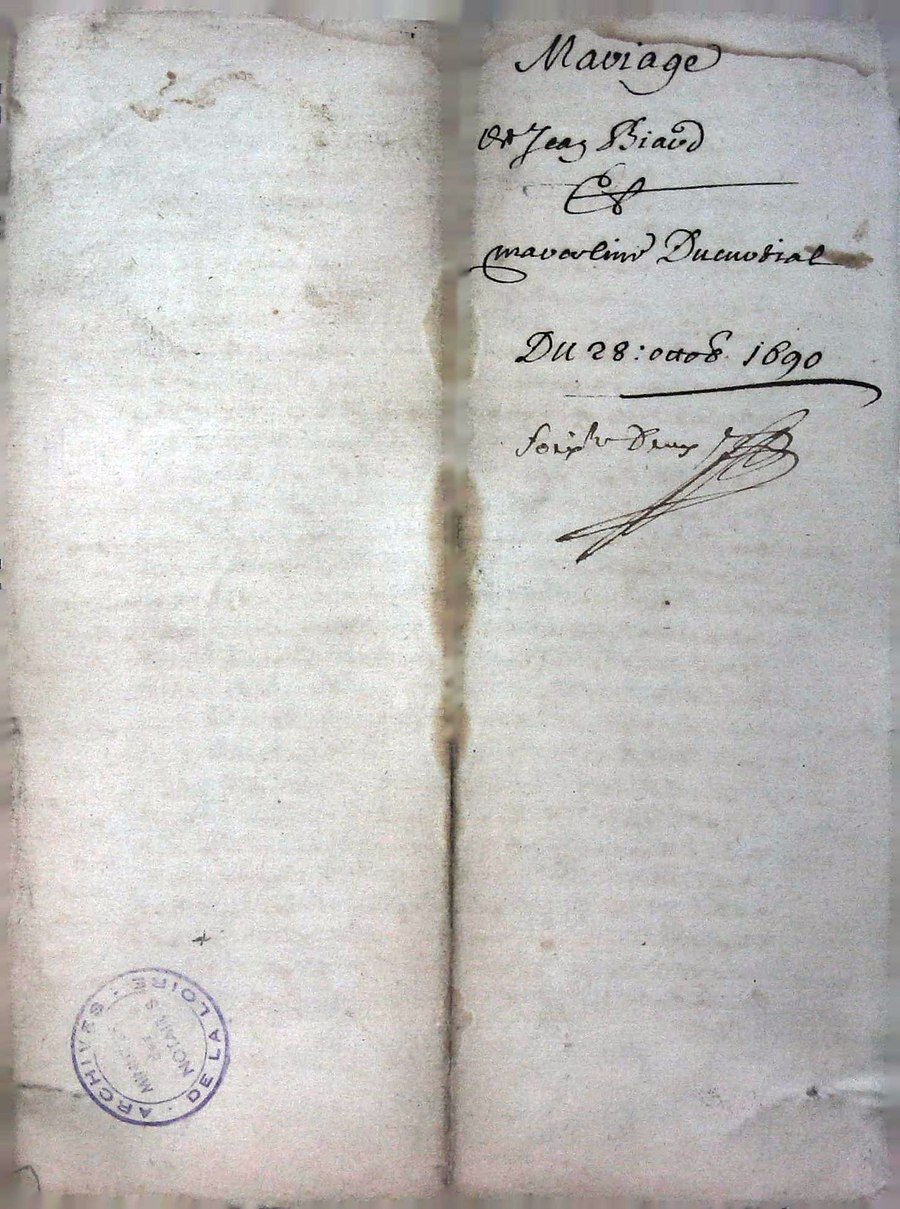 Mariage
de Jean Biard
Et
marceline Ducurtial
Du 28: octob 1690
ARCHIVES · DE LA LOIRE ·
NOTAIRES